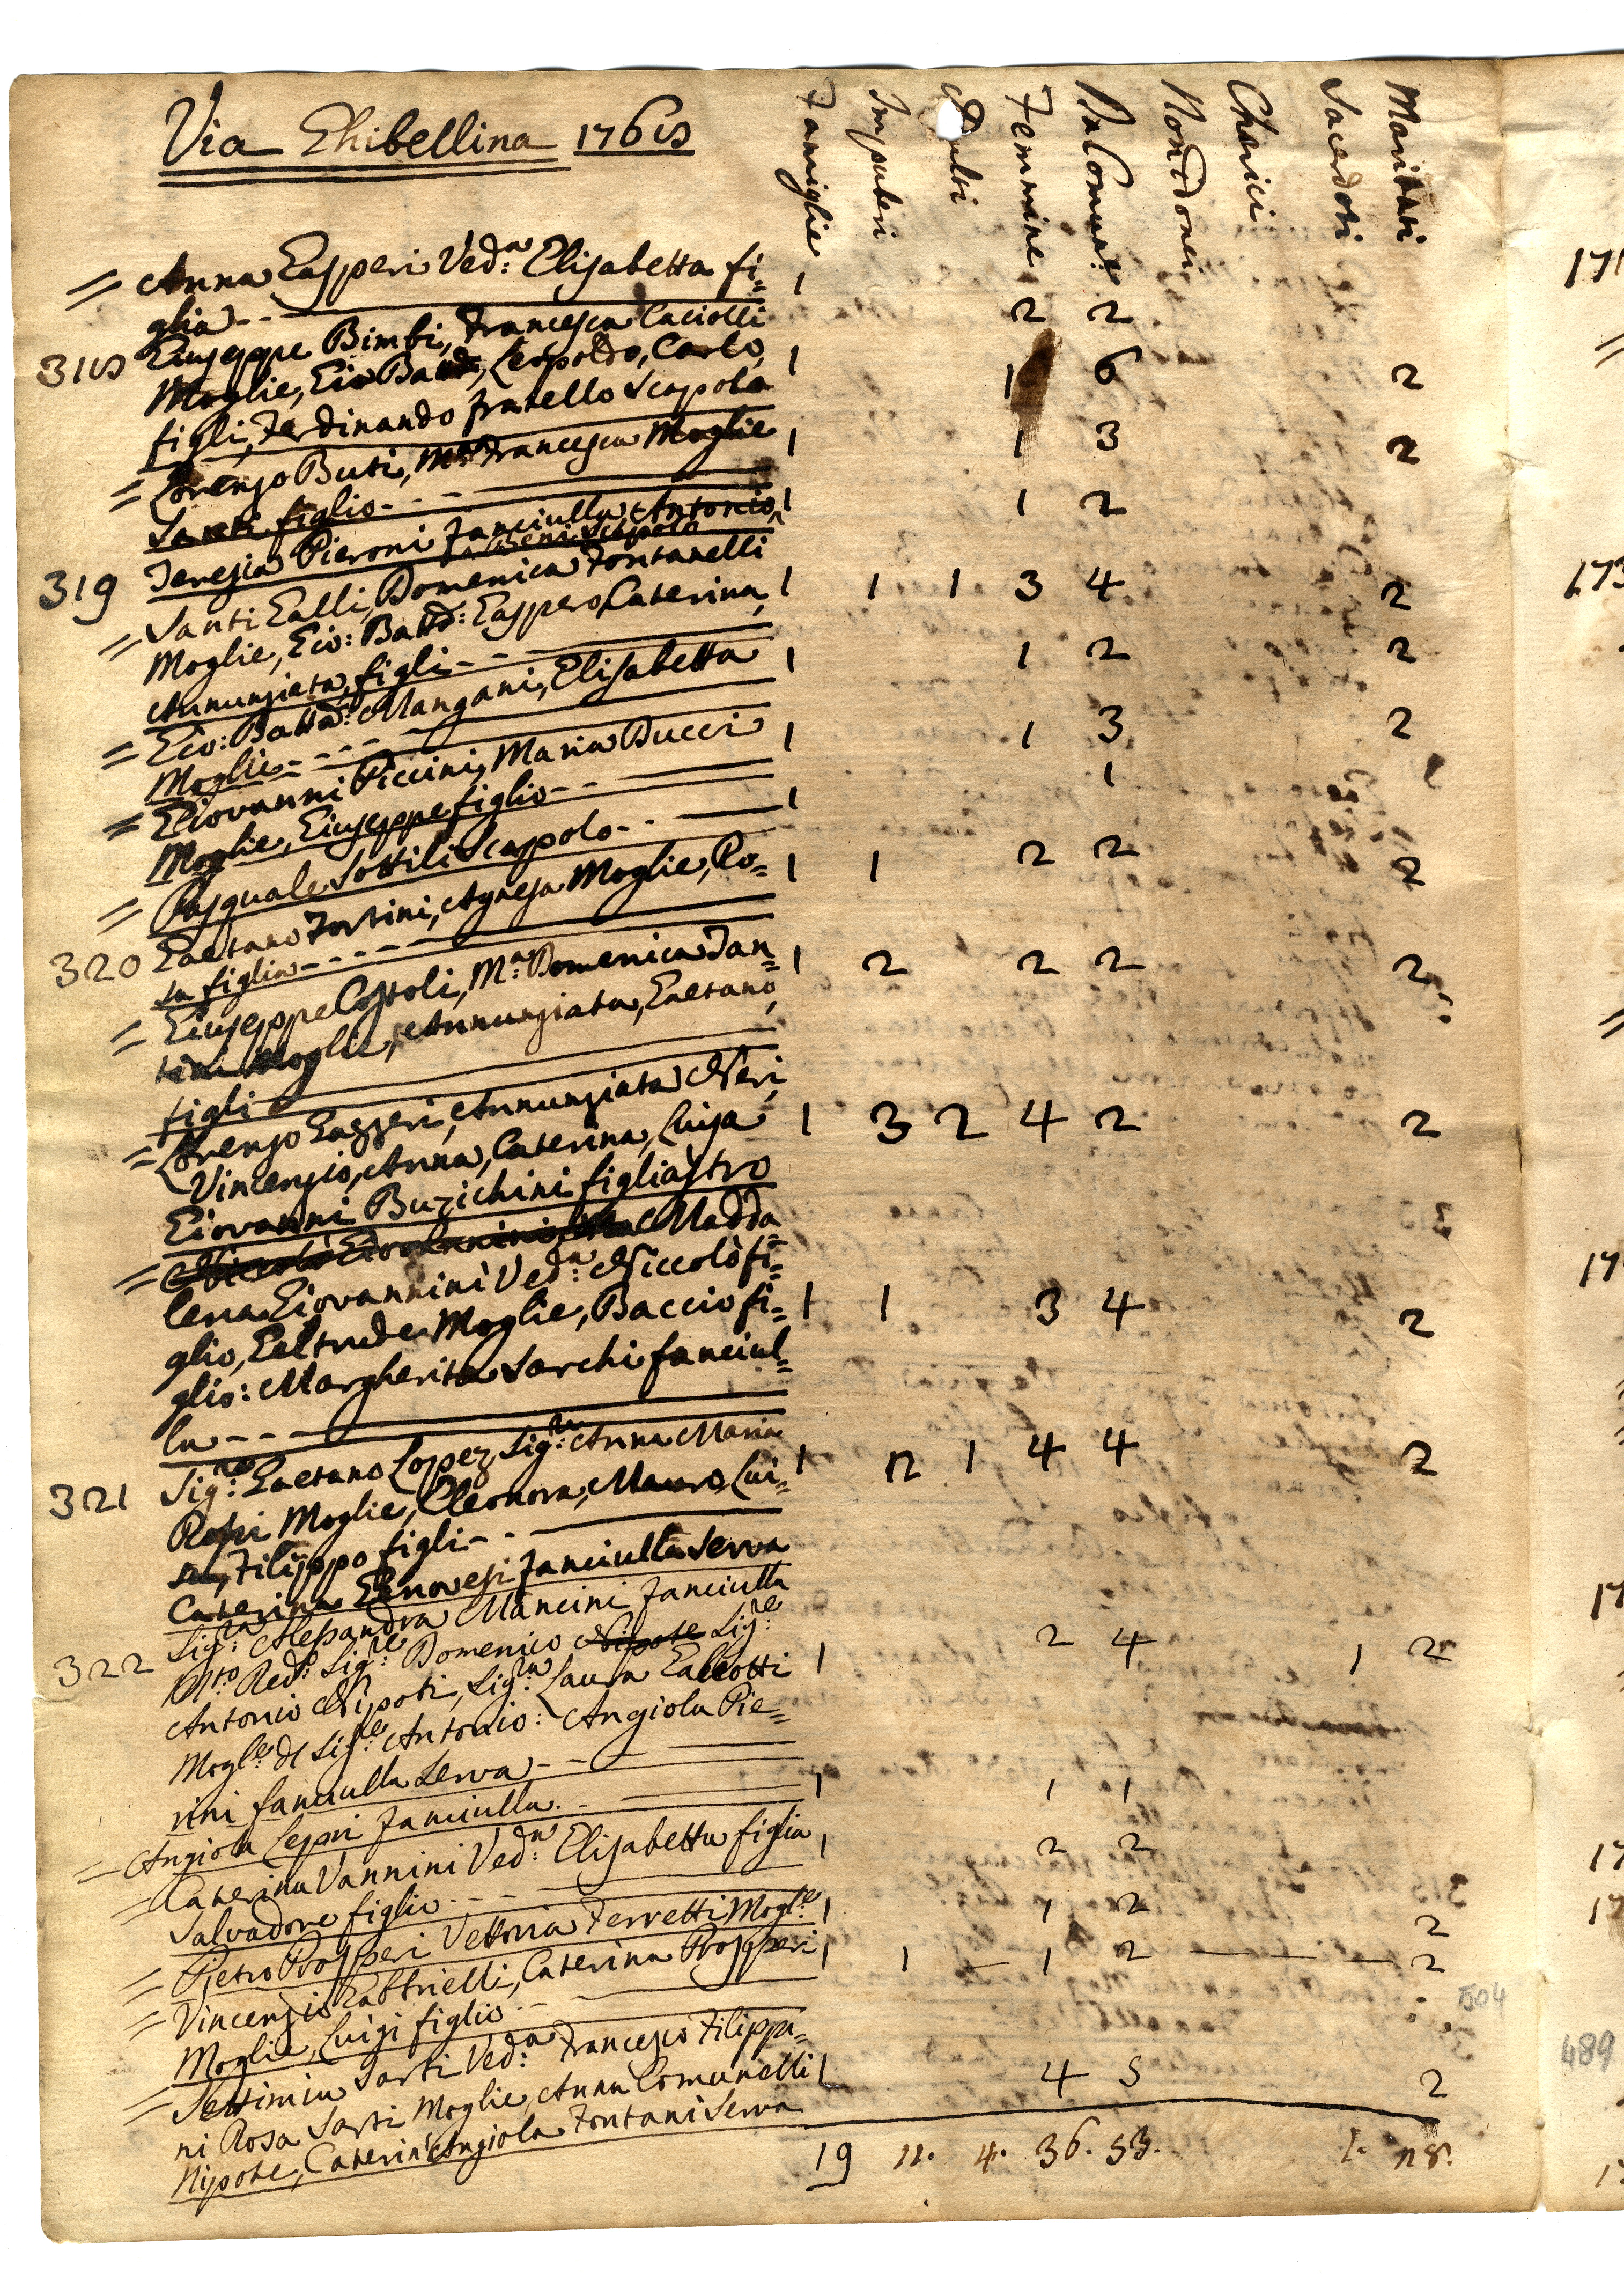 Via Ghibellina 1768
Famiglie Impuberi Adulti Femmine Da Comun.e Non Idonei Cherici Sacerdoti Maritati
= Anna Gasperi Ved.a Elisabetta fi= 1
glia - - 2 2
318 Giuseppe Bimbi, Francesca Caciolli
Moglie, Gio Batt, Leopoldo, Carlo, 1 1 6 2
figli, Ferdinando fratello scapolo
= Lorenzo Buti, M.a Francesca Moglie 1 1 3 2
Santi figlio - - -
319 Teresia Pieroni fanciulla Antonio 1 1 2
Beni scapolo
= Santi Galli, Domenica Fontanelli
Moglie, Gio: Batta: Gaspero, Caterina, 1 1 1 3 4 2
Annunziata, figli - - -
= Gio: Batta: Mangani, Elisabetta 1 1 2 2
Moglie - - - -
= Giovanni Piccini, Maria Bucci 1 1 3 2
Moglie, Giuseppe figlio - -
= Pasquale Sottili Scapolo - - 1 1
320 Gaetano Fortini, Agnesa Moglie, Ro= 1 1 2 2 2
sa figlia - - - -
= Giuseppe Costoli, M.a Domenica Fan= 1 2 2 2 2
tini Moglie, Annunziata, Gaetano,
figli
= Lorenzo Gazzeri, Annunziata Neri,
Vincenzio, Anna, Caterina, Luisa 1 3 2 4 2 2
Giovanni Buzichini figliastro
= Niccolò Giovannini, Madda=
lena Giovannini Ved.a Niccolò fi=
glio, Geltrude Moglie, Baccio fi= 1 1 3 4 2
glio: Margherita Sarchi fanciul=
la - - -
321 Sig.re Gaetano Lopez, Sig.ra Anna Maria 1 2 1 4 4 2
Rossi Moglie, Eleonora, Mauro, Lui=
sa, Filippo figli - -
Caterina Genovesi fanciulla Serva
322 Sig.ra Alessandra Mancini fanciulla
M.to Red.o Sig.re Domenico Nipote Sig.re 1 2 4 1 2
Antonio Nipoti, Sig.ra Laura Galeotti
Mogl.e dl Sig.re Antonio: Angiola Pie=
rini fanciulla Serva - -
= Angiola Lepri fanciulla - 1 1 1
= Caterina Vannini Ved.a Elisabetta figlia 1 2 2
Salvadore figlio - - -
= Pietro Prosperi Vettoria Ferretti Mogl.e 1 1 2 2
= Vincenzio Gabbrielli, Caterina Prosperi 1 1 — 1 2 — — — 2
Moglie, Luigi figlio - -
= Settimia Sarti Ved.a Francesco Filippi=
ni Rosa Sarti Moglie, Anna Comunelli 1 4 5 2
Nipote, Caterin'Angiola Fontani Serva
19 12. 4. 36. 53. 1. 28.
504
489